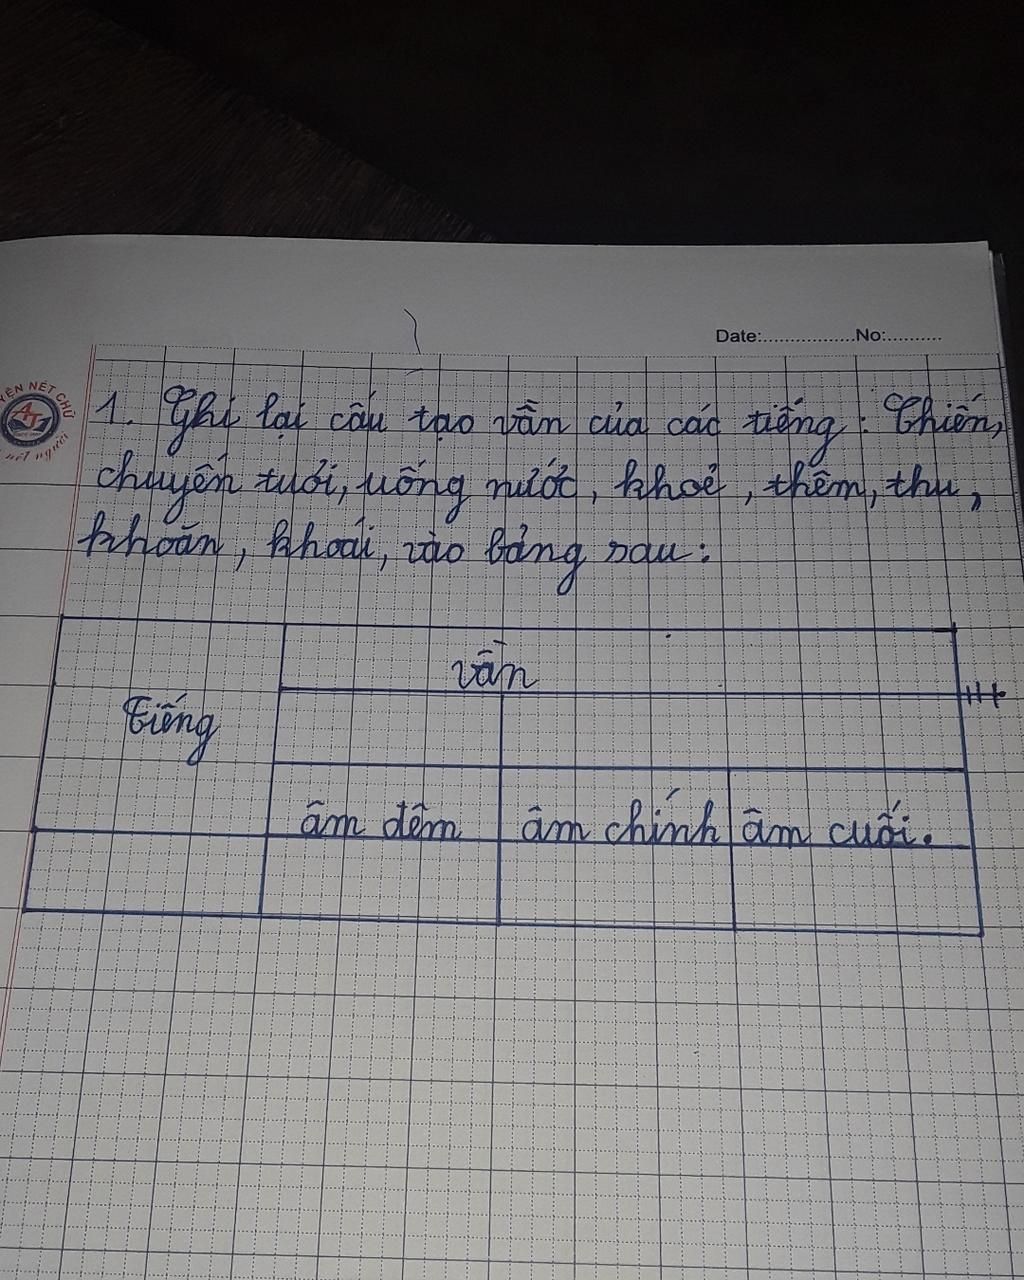 Date:.................No:..........
YÊN NẾT CHỮ
nết người
1. Ghi lại cấu tạo vần của các tiếng: Chiến,
chuyến tuổi, uống nước, khoẻ, thêm, thu,
khoăn, khoái, vào bảng sau:
vần
tiếng
âm đêm âm chính âm cuối.